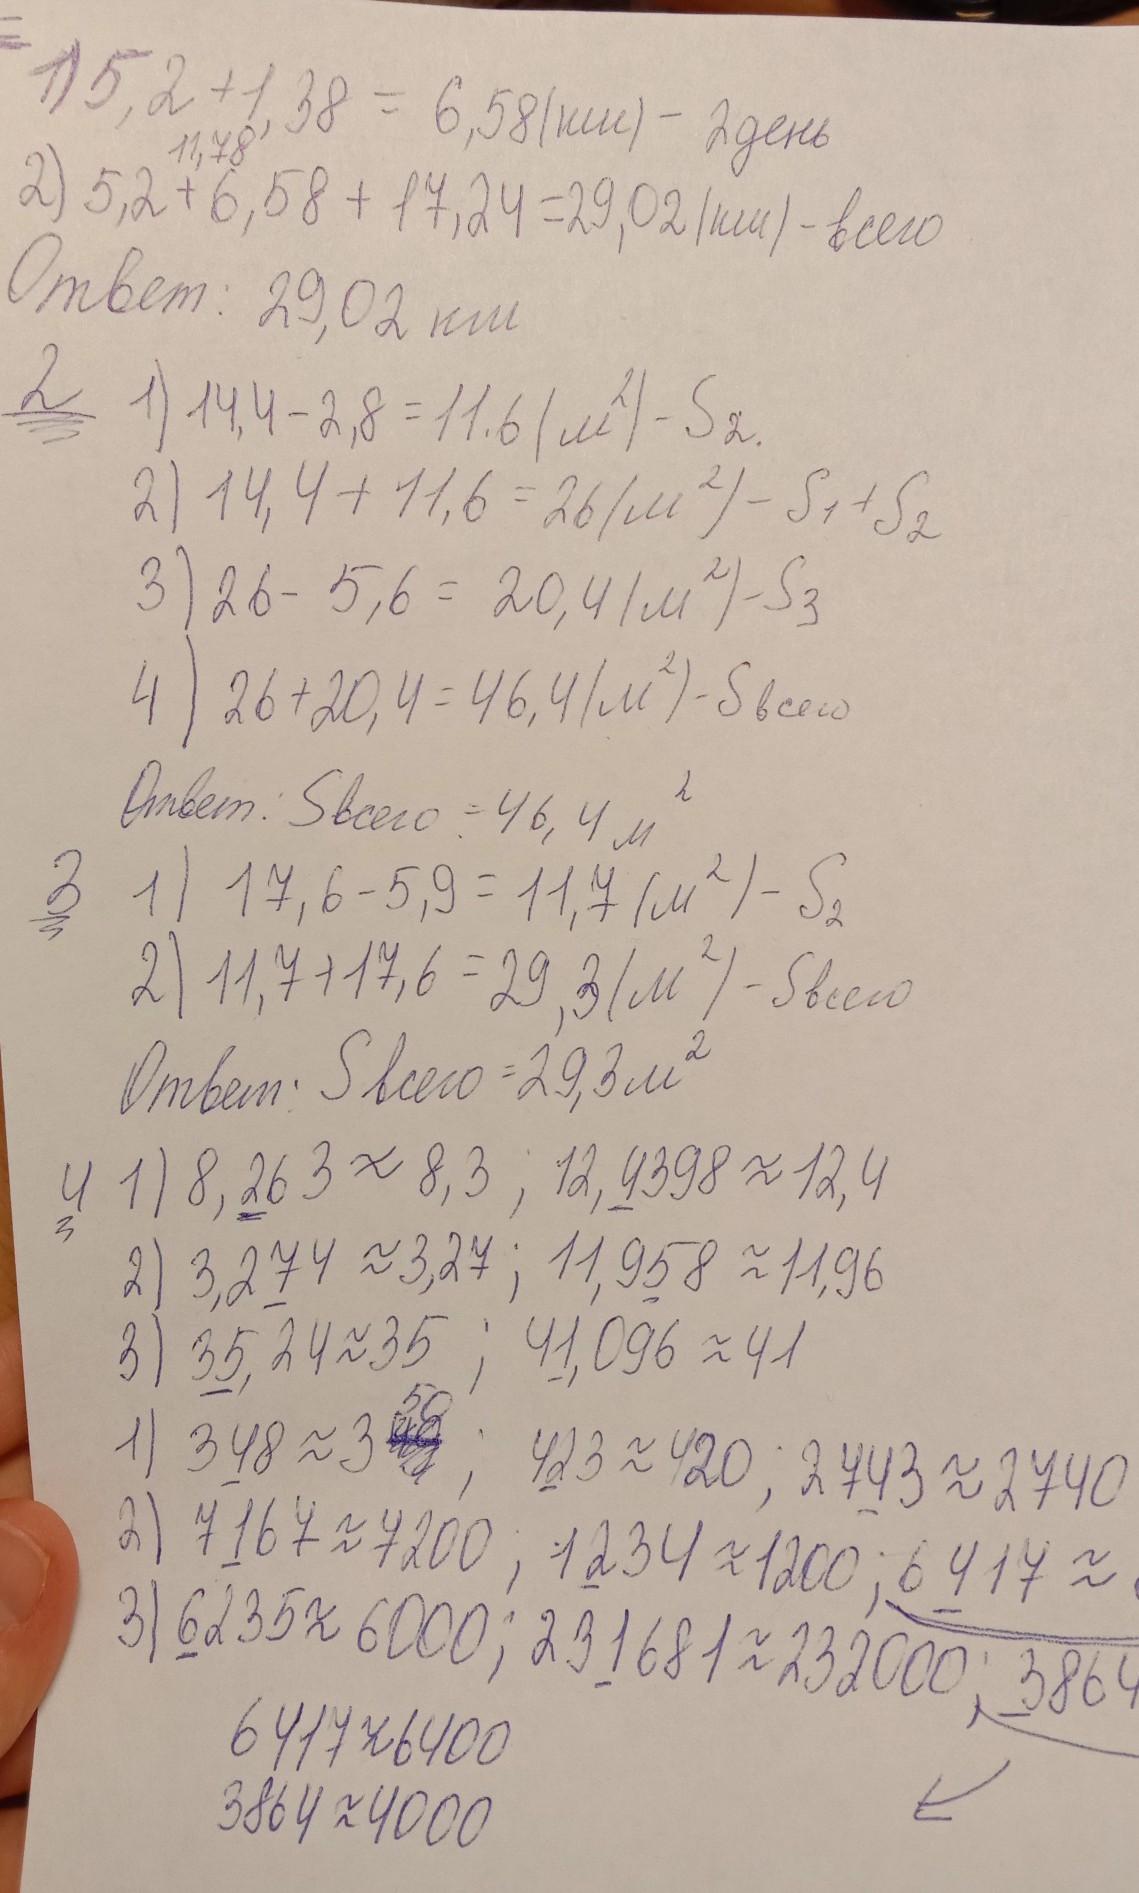 1) 5,2 + 1,38 = 6,58 (км) - 2 день
11,78
2) 5,2 + 6,58 + 17,24 = 29,02 (км) - всего
Ответ: 29,02 км
2 1) 14,4 - 2,8 = 11.6 (м²) - S₂.
2) 14,4 + 11,6 = 26 (м²) - S₁ + S₂
3) 26 - 5,6 = 20,4 (м²) - S₃
4) 26 + 20,4 = 46,4 (м²) - Sвсего
Ответ: Sвсего = 46,4 м²
3 1) 17,6 - 5,9 = 11,7 (м²) - S₂
2) 11,7 + 17,6 = 29,3 (м²) - Sвсего
Ответ: Sвсего = 29,3 м²
4 1) 8,263 ≈ 8,3 ; 12,4398 ≈ 12,4
2) 3,274 ≈ 3,27 ; 11,958 ≈ 11,96
3) 35,24 ≈ 35 ; 41,096 ≈ 41
1) 348 ≈ 350 ; 423 ≈ 420 ; 2743 ≈ 2740
2) 7167 ≈ 7200 ; 1234 ≈ 1200 ; 6417 ≈
3) 6235 ≈ 6000 ; 231681 ≈ 232000 ; 3864
6417 ≈ 6400
3864 ≈ 4000